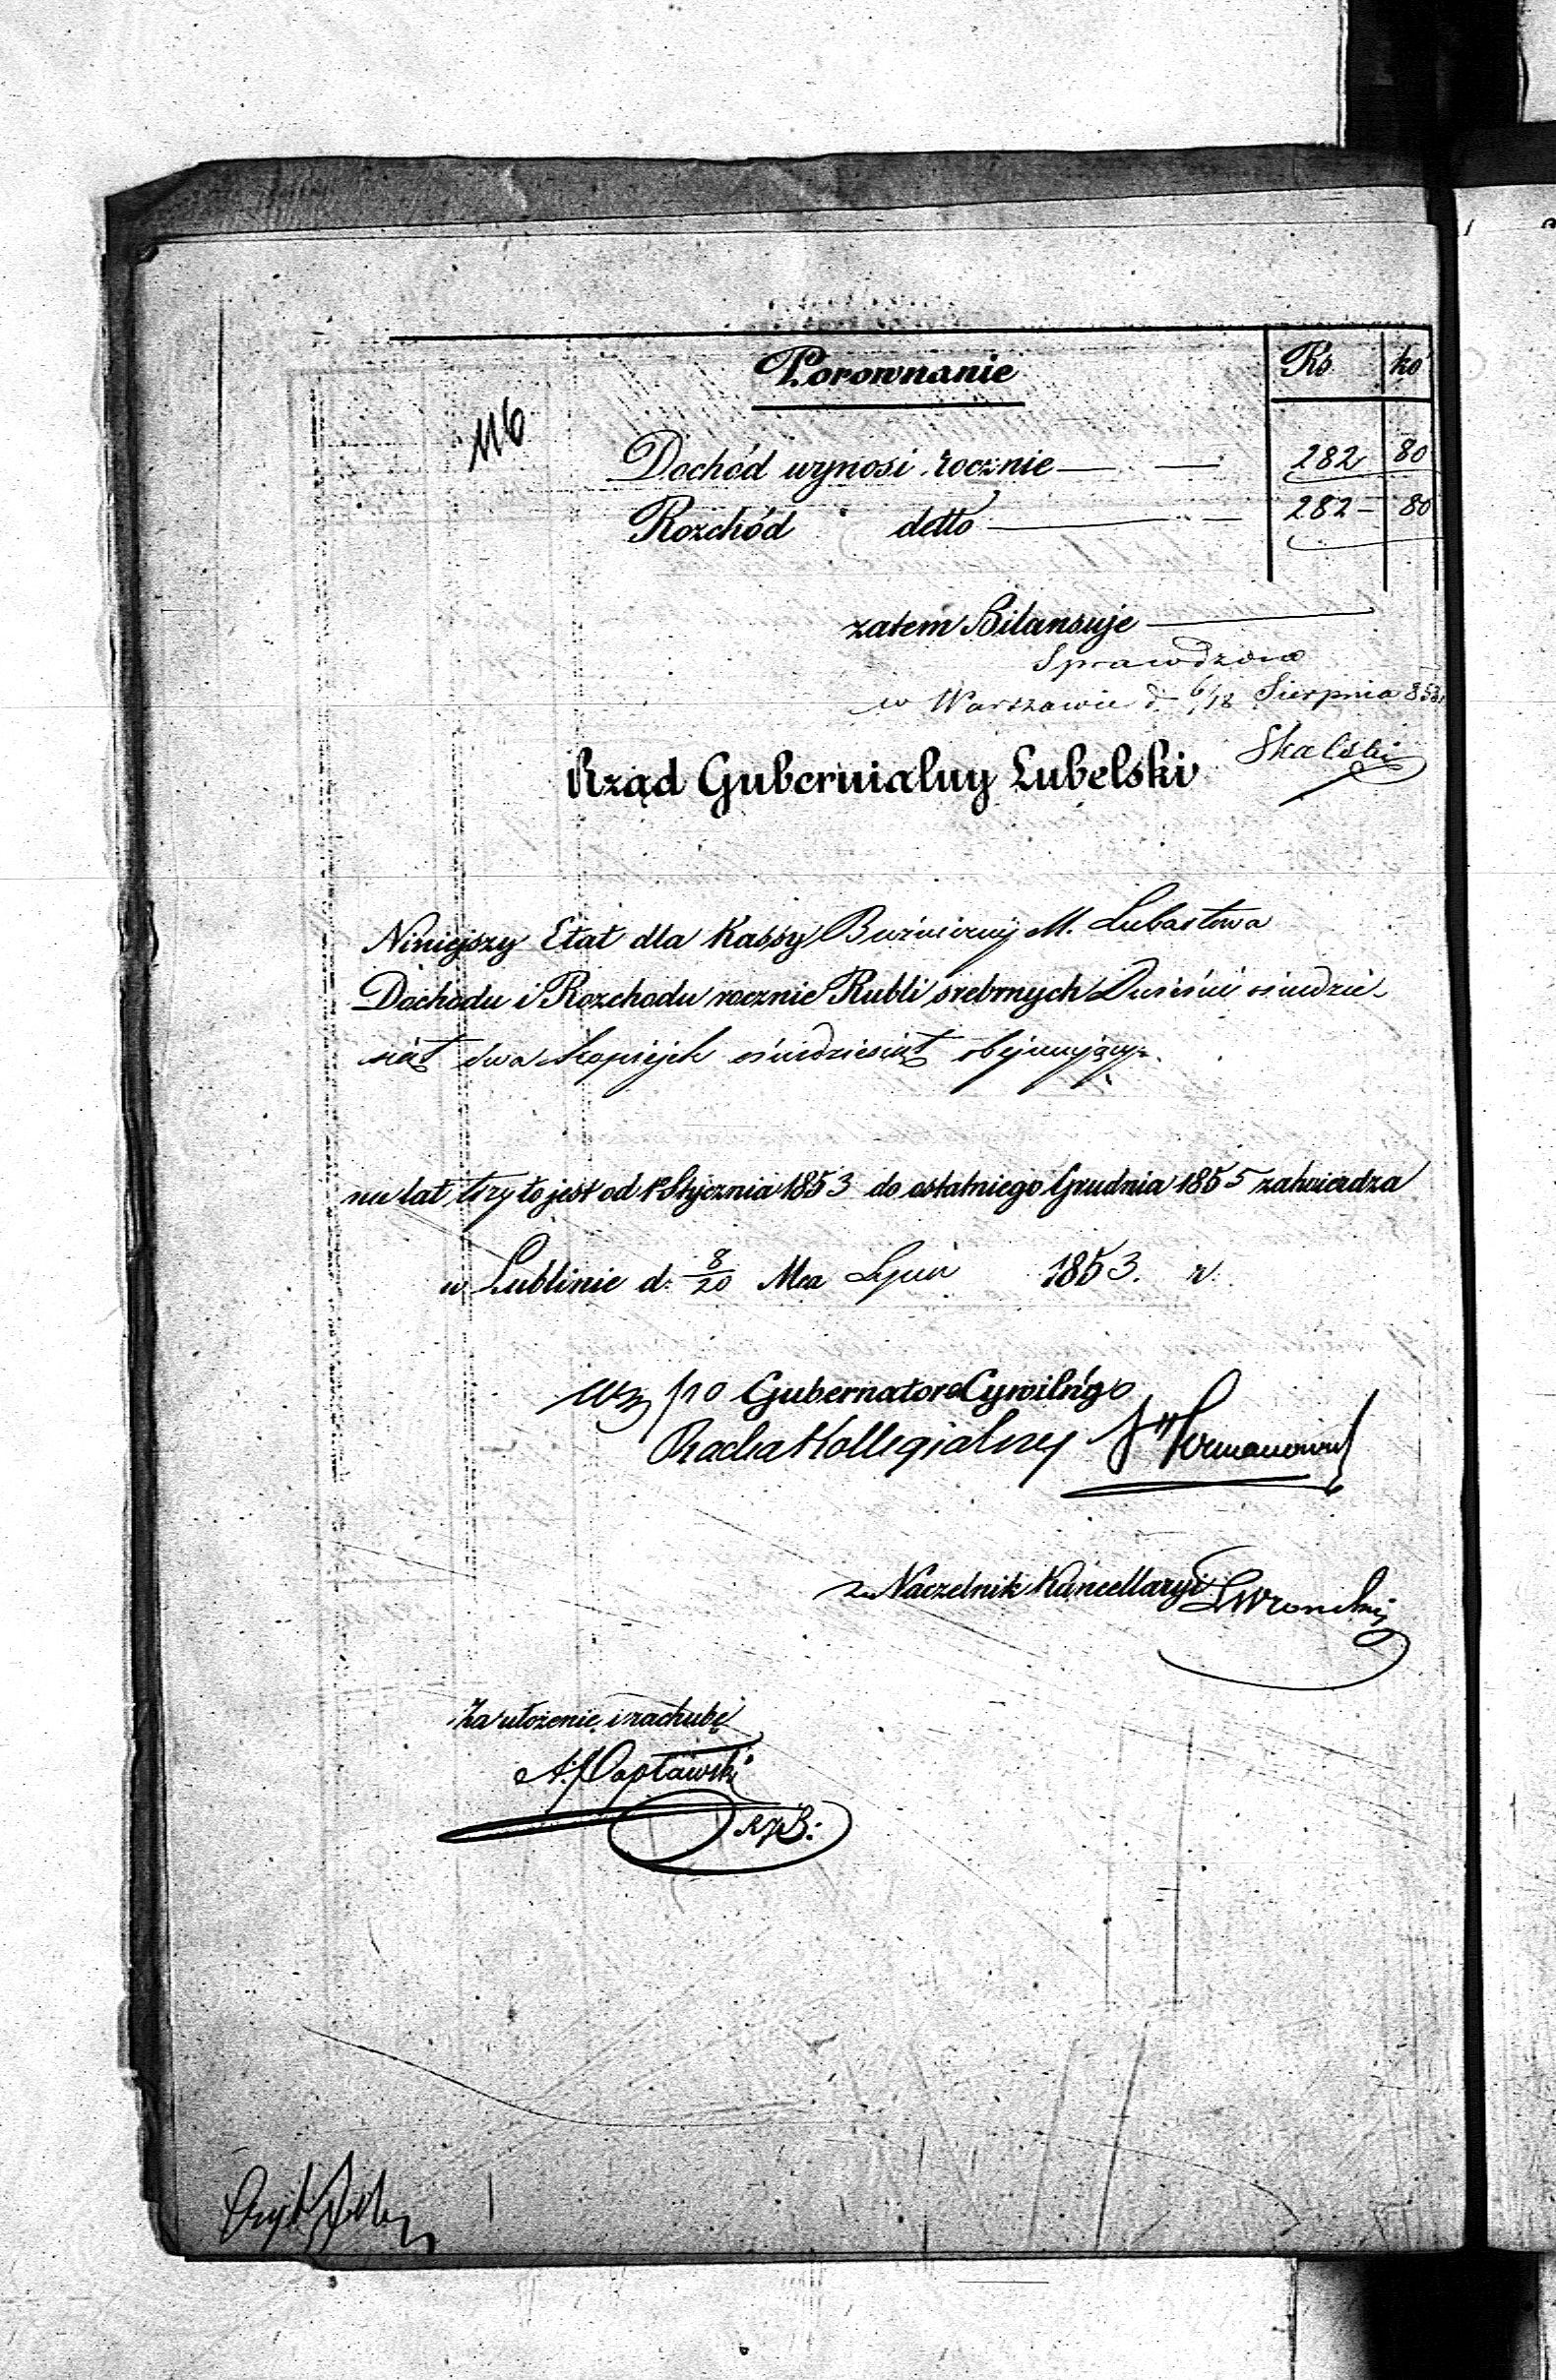 Porownanie Rs. ko
116
Dochód wynosi rocznie 282 80
Rozchód detto 282 80
zatem Bilansuje
Sprawdzono
w Warszawie d. 6/18 Sierpnia 853.
Skalski
Rząd Gubernialny Lubelski
Niniejszy Etat dla Kassy Bużniczny M. Lubartowa
Dochodu i Rozchodu rocznie Rubli srebrnych Dwieście ośmdzie-
siąt dwa kopiejek ośmdziesiąt obejmujący.
na lat trzy to jest od 1o Stycznia 1853 do ostatniego Grudnia 1855 zatwierdza
w Lublinie d. 8/20 Mca Lipca 1853. r.
Gubernatora Cywilnego
Radca Kollegialny
Naczelnik Kancellaryi
Za ułożenie i rachubę
A. Popławski